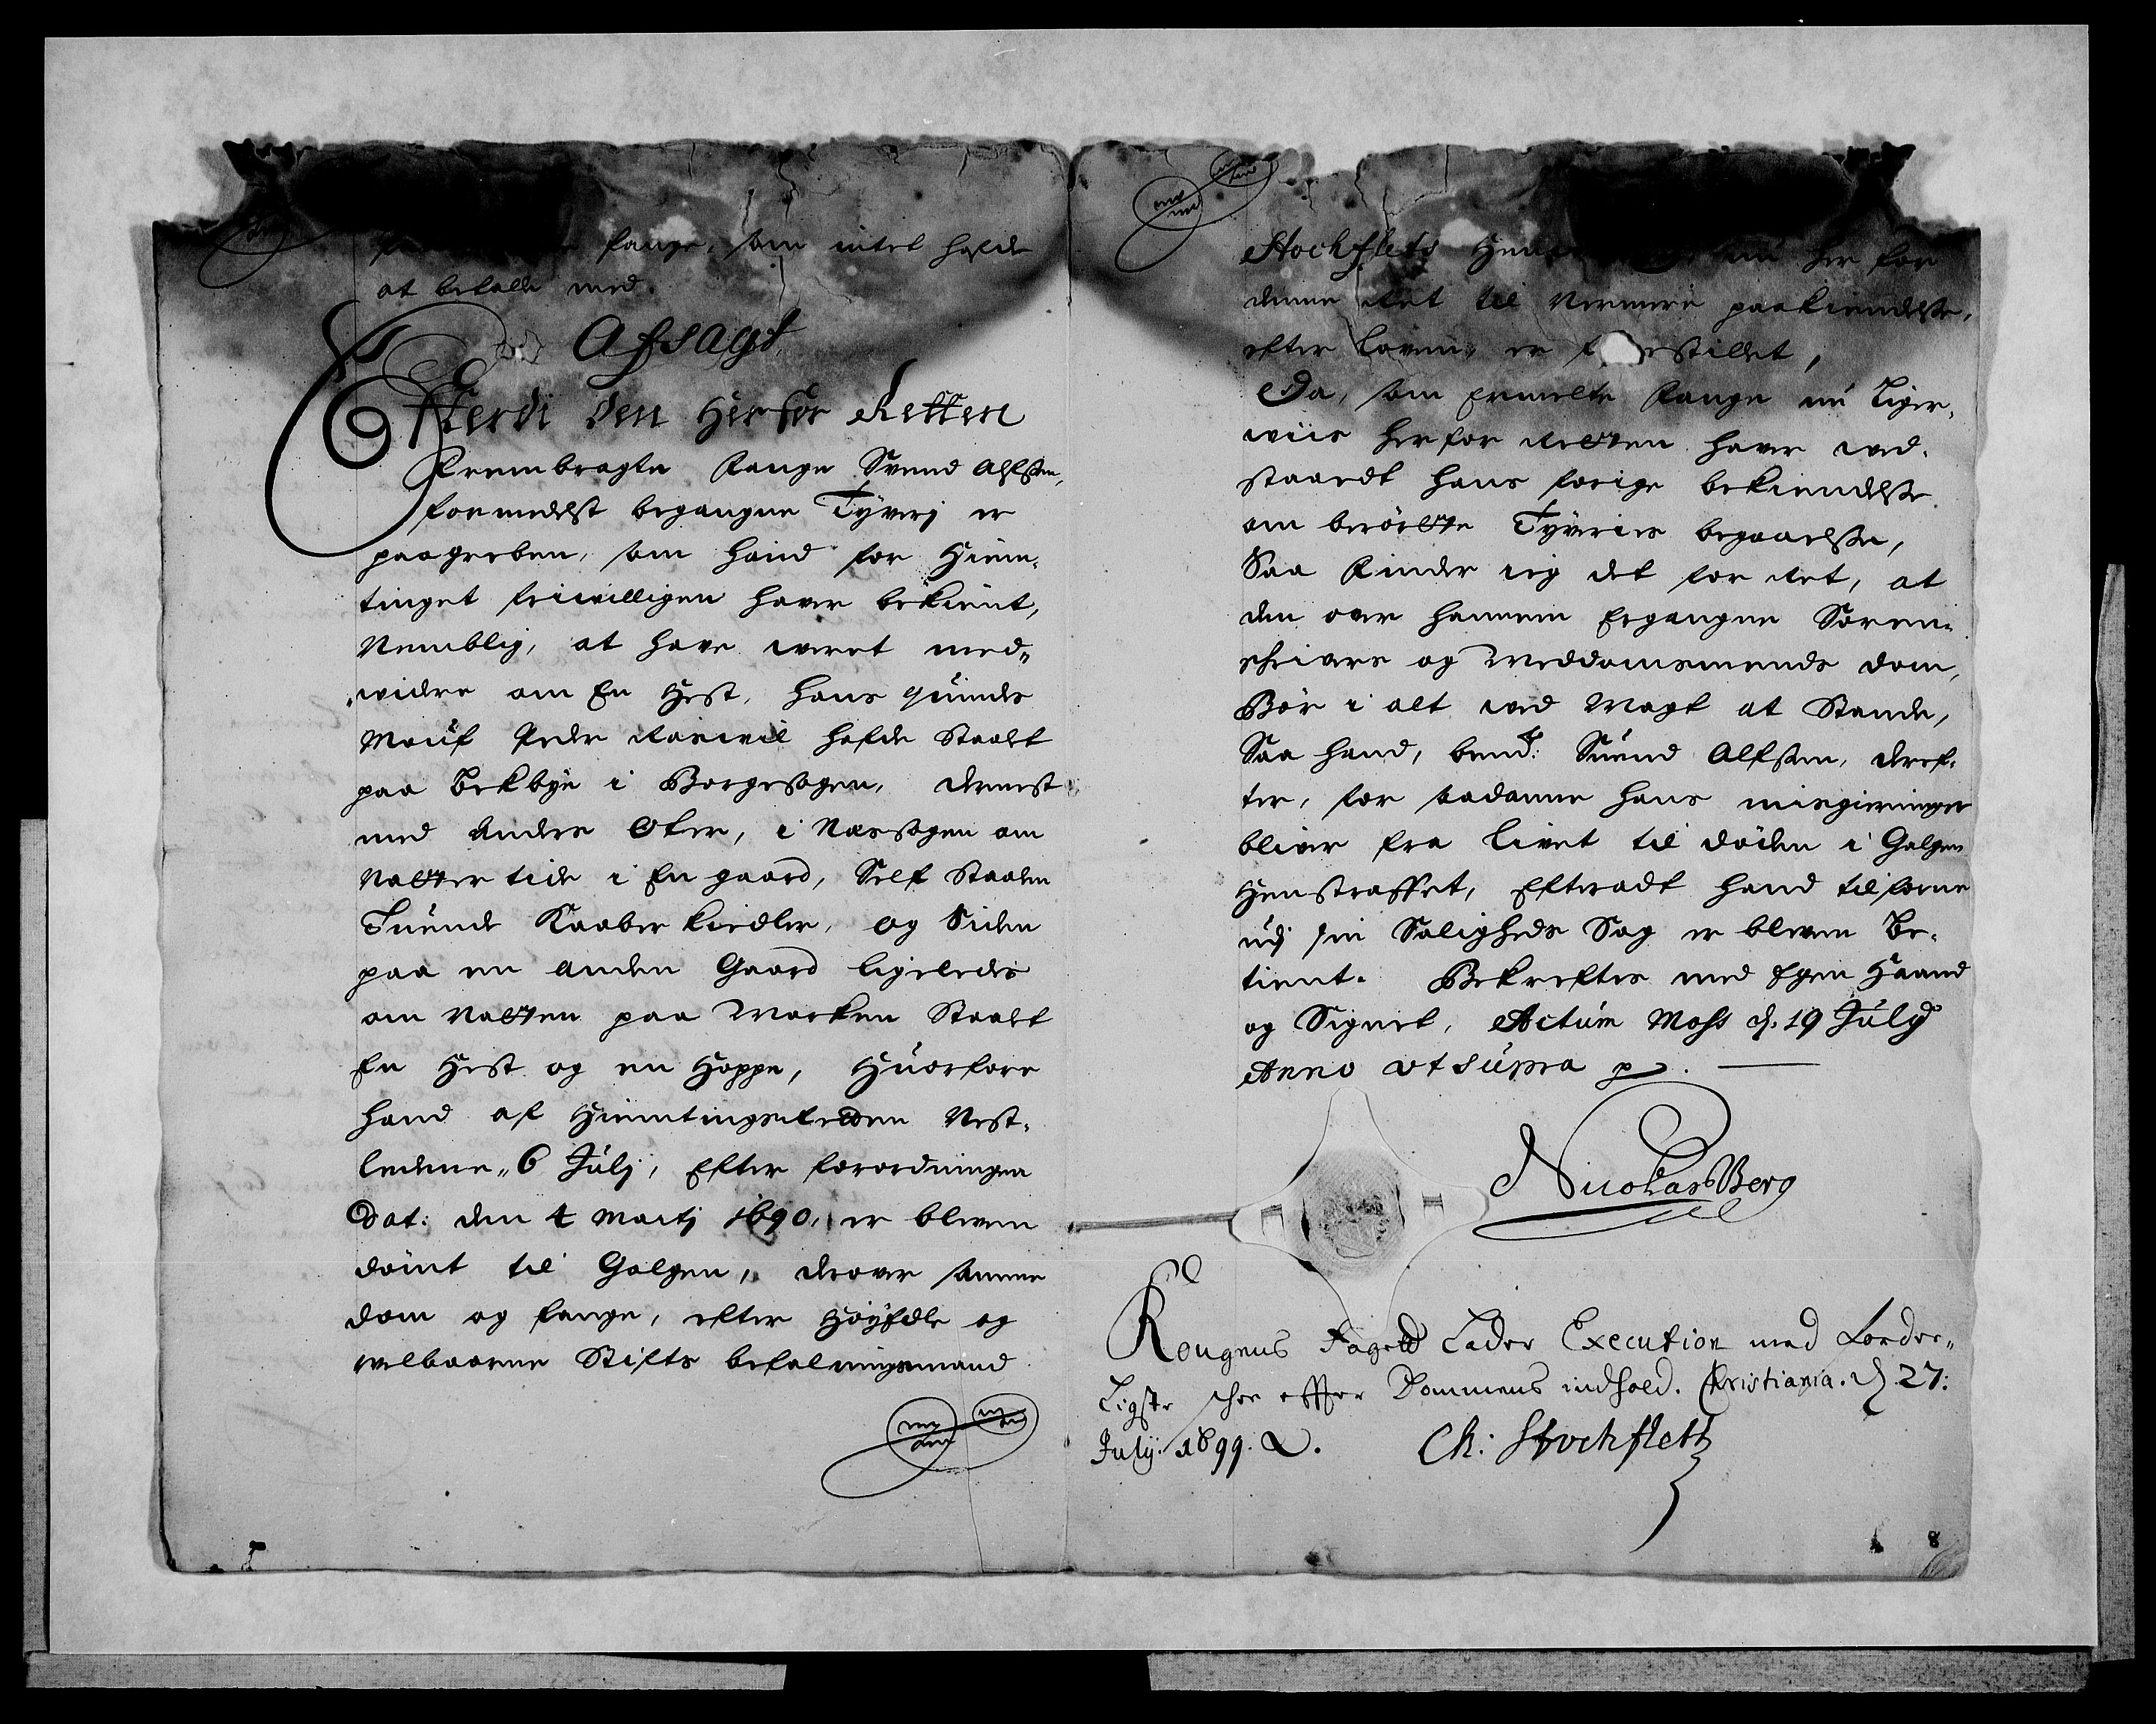 fange, som intet hafde
at betalle med.
Afsagt
Efterdi den Herfor Retten
Frembragte Fange Svend Alfsen,
formedelst begangne Tyverj er
paagreben, som hand for Hiem-
tinget friwilligen hawer bekient,
Nemblig, at have weret med„
„widere om En Hest, hans quindes
Mouf Peder hafde Staalt
paa Bekbye i Borgesogen, dernest
med Anders Oter, i Næssogen om
Natter tide i En gaard, Self Staalen
Tuende Kaaber Kiedler, og Siden
paa en anden Gaard ligeledes
om Natten paa Marken Staalt
En Hest og en Hoppe, Huorfore
hand af Hiemtingsretten Nest-
ledene„ 6 Julj, Efter forordningen
Dat: den 4 Martj 1690, er blewen
dömt til Galgen, derover samme
dom og fange, efter Höyædle og
welbaarne Stifts befalningsmand
Stochflets nu her for
denne Ret til Nermere paakiendelse,
efter Lowen, er forestillet,
Da, som Ermelte Fange nu Liger-
wiis her for Retten hawer wed-
staaedt hans forige bekiendelse
om berörte Tyveries begaaelse,
Saa Kinder ieg det for Ret, at
den over hannem Ergangne Soren-
skriwers og Meddomsmends dom,
Bör i alt wed Magt at Stande,
Saa hand, bemt: Suend Alfsen, deref-
ter, for saadanne hans misgierninger
bliver fra Livet til döden i Galgen
Henstraffet, Efteradt hand tilforne
udj sin Saligheds Sag er blewen Be-
tient. Bekreftes med Egen Haand
og Signet, Actum Moss d. 19 Julij
Anno ut supra p.
Nicolas Berg
Kongens Foged Lader Execution med forder„
Ligste skee effter Dommens indhold. Christiania. d. 27:
Julij. 1699.
Ch: Stochflett
8